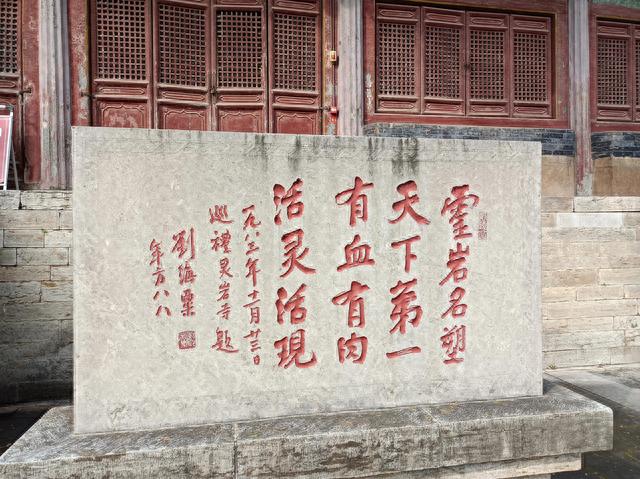 靈岩名塑
天下第一
有血有肉
活灵活現
一九八三年十一月廿三日
巡禮灵岩寺題
劉海粟
年方八八